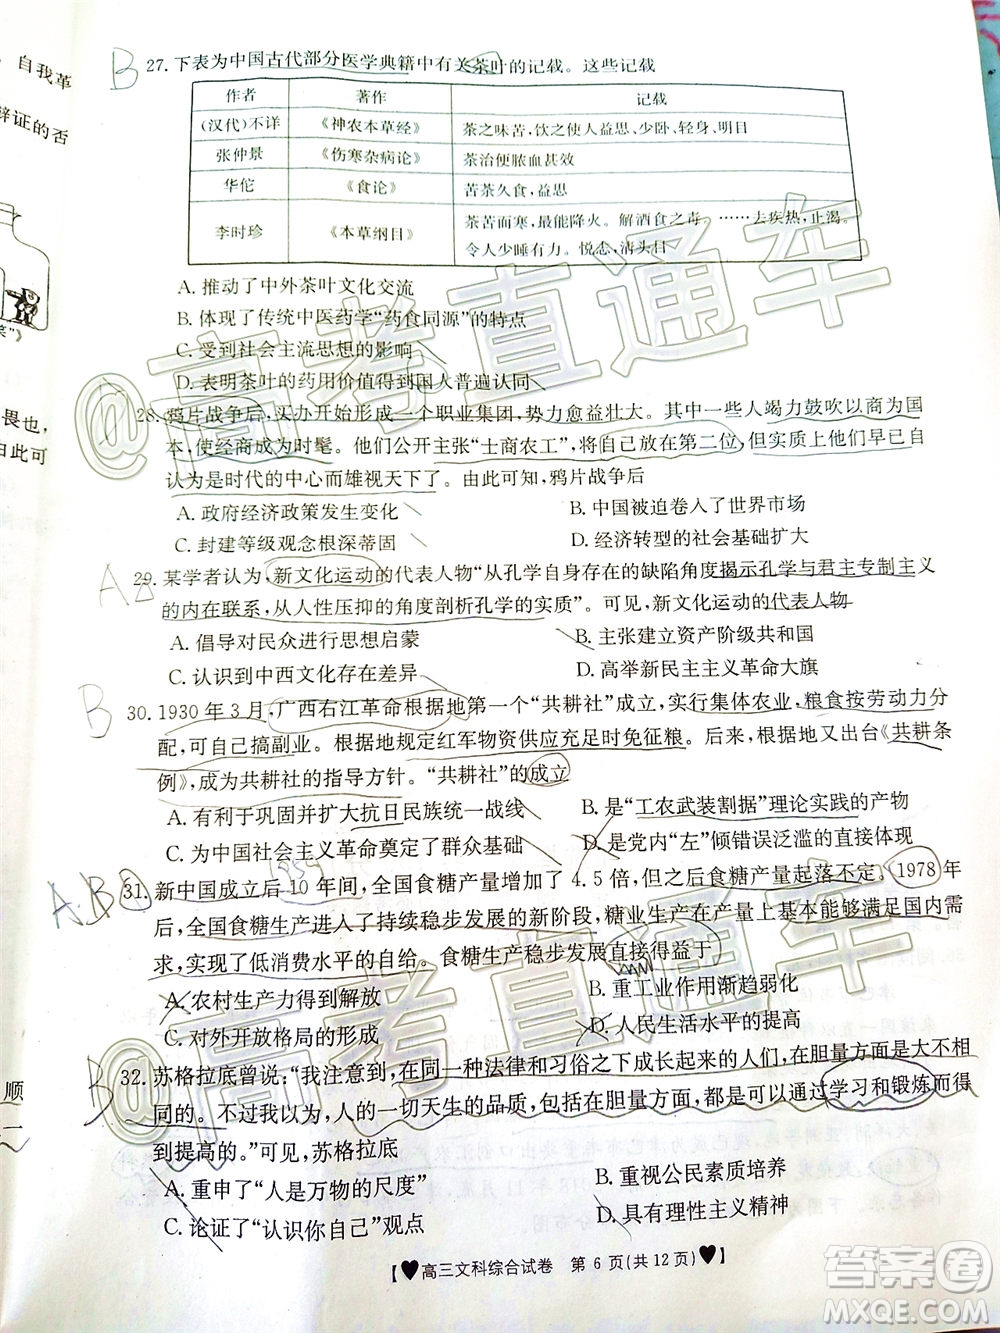 自我革
辩证的否
畏也，
由此可
顺
一
B
27. 下表为中国古代部分医学典籍中有关茶叶的记载。这些记载
作者 著作 记载
(汉代)不详 《神农本草经》 茶之味苦，饮之使人益思、少卧、轻身、明目
张仲景 《伤寒杂病论》 茶治便脓血甚效
华佗 《食论》 苦茶久食，益思
李时珍 《本草纲目》 茶苦而寒，最能降火。解酒食之毒。……去疾热，止渴。
令人少睡有力。悦志，清头目
A. 推动了中外茶叶文化交流
B. 体现了传统中医药学“药食同源”的特点
C. 受到社会主流思想的影响
D. 表明茶叶的药用价值得到国人普遍认同
28. 鸦片战争后，买办开始形成一个职业集团，势力愈益壮大。其中一些人竭力鼓吹以商为国
本，使经商成为时髦。他们公开主张“士商农工”，将自己放在第二位，但实质上他们早已自
认为是时代的中心而雄视天下了。由此可知，鸦片战争后
A. 政府经济政策发生变化 B. 中国被迫卷入了世界市场
C. 封建等级观念根深蒂固 D. 经济转型的社会基础扩大
A
29. 某学者认为，新文化运动的代表人物“从孔学自身存在的缺陷角度揭示孔学与君主专制主义
的内在联系，从人性压抑的角度剖析孔学的实质”。可见，新文化运动的代表人物
A. 倡导对民众进行思想启蒙 B. 主张建立资产阶级共和国
C. 认识到中西文化存在差异 D. 高举新民主主义革命大旗
B
30. 1930 年 3 月，广西右江革命根据地第一个“共耕社”成立，实行集体农业，粮食按劳动力分
配，可自己搞副业。根据地规定红军物资供应充足时免征粮。根据地又出台《共耕条
例》，成为共耕社的指导方针。“共耕社”的成立
A. 有利于巩固并扩大抗日民族统一战线 B. 是“工农武装割据”理论实践的产物
C. 为中国社会主义革命奠定了群众基础 D. 是党内“左”倾错误泛滥的直接体现
A.B
31. 新中国成立后 10 年间，全国食糖产量增加了 4.5 倍，之后食糖产量起落不定。1978 年
后，全国食糖生产进入了持续稳步发展的新阶段，糖业生产在产量上基本能够满足国内需
求，实现了低消费水平的自给。食糖生产稳步发展直接得益于
A. 农村生产力得到解放 B. 重工业作用渐趋弱化
C. 对外开放格局的形成 D. 人民生活水平的提高
B
32. 苏格拉底曾说：“我注意到，在同一种法律和习俗之下成长起来的人们，在胆量方面是大不相
同的。不过我以为，人的一切天生的品质，包括在胆量方面，都是可以通过学习和锻炼而得
到提高的。”可见，苏格拉底
A. 重申了“人是万物的尺度” B. 重视公民素质培养
C. 论证了“认识你自己”观点 D. 具有理性主义精神
【♥高三文科综合试卷 第 6 页(共 12 页)♥】
@高考直通车
@高考直通车
答案圈
MXQE.COM